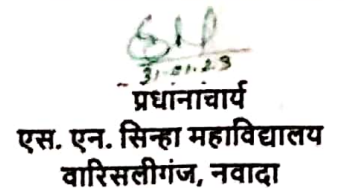 31-01-23
प्रधानाचार्य
एस. एन. सिन्हा महाविद्यालय
वारिसलीगंज, नवादा